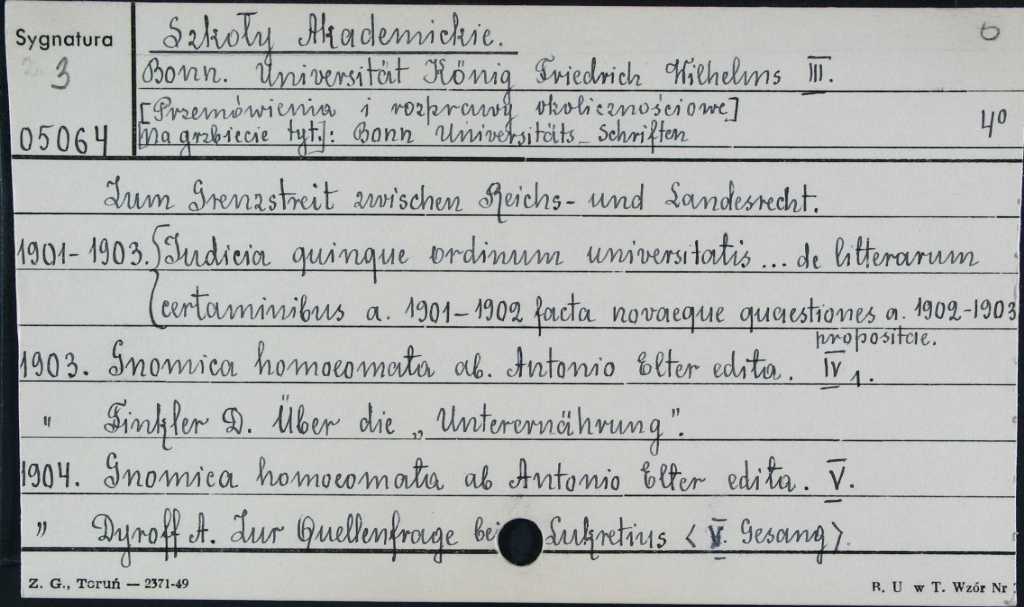 Sygnatura
3
05064
Szkoły Akademickie.
6
Bonn. Universität König Friedrich Wilhelms III.
[Przemówienia i rozprawy okolicznościowe]
[Na grzbiecie tyt.]: Bonn Universitäts-Schriften
4º
Zum Grenzstreit zwischen Reichs- und Landesrecht.
1901-1903. Judicia quinque ordinum universitatis ... de litterarum
certaminibus a. 1901-1902 facta novaeque quaestiones a. 1902-1903
propositae.
1903. Gnomica homoeomata ab. Antonio Elter edita. IV 1.
" Finkler D. Über die „Unterernährung".
1904. Gnomica homoeomata ab Antonio Elter edita. V.
" Dyroff A. Zur Quellenfrage bei Lukretius <V. Gesang>.
Z. G., Toruń — 2371-49
B. U w T. Wzór Nr